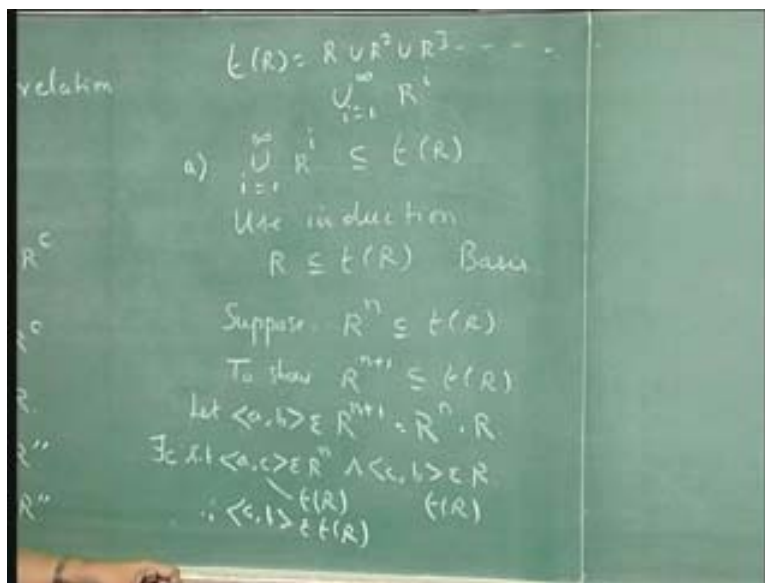 relation
R^c
R^c
R.
R''
R''
t(R) = R ∪ R² ∪ R³ - - - - -
∪ᵢ₌₁^∞ Rⁱ
a) ∪ᵢ₌₁^∞ Rⁱ ⊆ t(R)
Use induction
R ⊆ t(R) Basis
Suppose Rⁿ ⊆ t(R)
To show Rⁿ⁺¹ ⊆ t(R)
Let <a,b> ε Rⁿ⁺¹ = Rⁿ · R
∃c s.t <a,c> ε Rⁿ ∧ <c,b> ε R
t(R) t(R)
∴ <c,b> ε t(R)